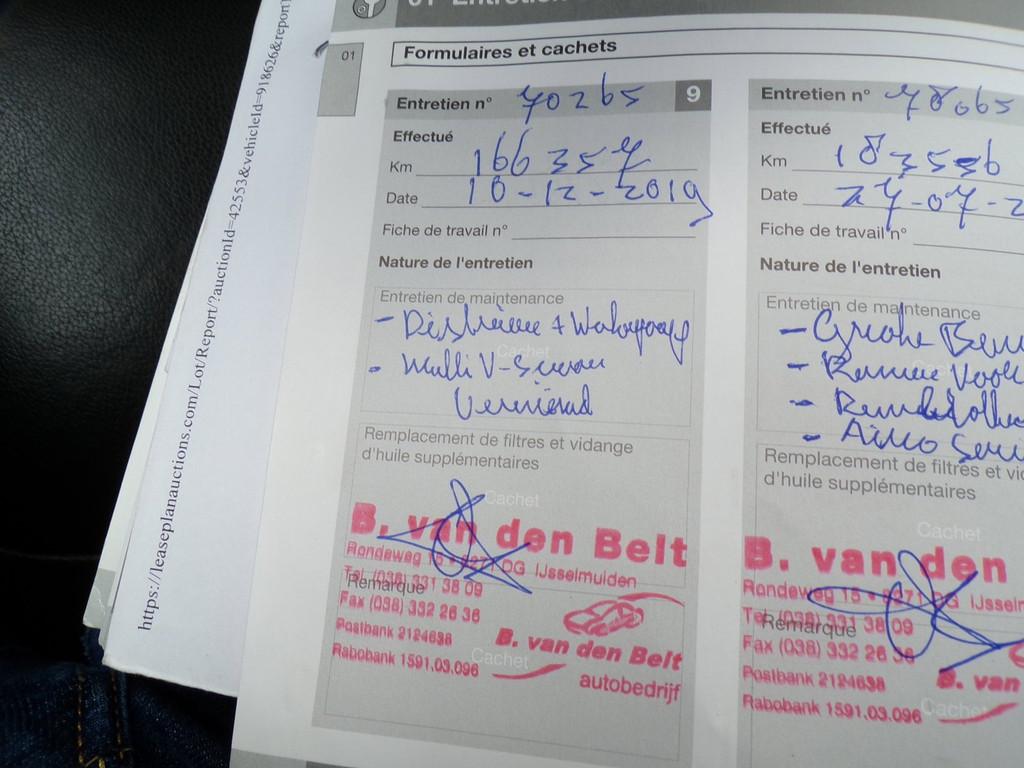 01 Entretien
https://leaseplanauctions.com/Lot/Report/?auctionId=42553&vehicleId=918626&report
01
Formulaires et cachets
Entretien n° 70265 9
Effectué
Km 166357
Date 10-12-2019
Fiche de travail n°
Nature de l'entretien
Entretien de maintenance
- Distributie + Waterpomp
- Multi V-Snaar
Vernieuwd
Cachet
Remplacement de filtres et vidange
d'huile supplémentaires
Cachet
B. van den Belt
Rondeweg 15 • 8271 DG IJsselmuiden
Tel. (038) 331 38 09
Remarque
Fax (038) 332 26 36
Postbank 2124638
Rabobank 1591.03.096
B. van den Belt
autobedrijf
Cachet
Entretien n° 78065
Effectué
Km 183556
Date 27-07-2
Fiche de travail n°
Nature de l'entretien
Entretien de maintenance
- Grote Beur
- Remmen Voor
-
- Airco Servi
Remplacement de filtres et vid
d'huile supplémentaires
Cachet
B. van den
Rondeweg 15 • 8271 DG IJsselm
Tel. (038) 331 38 09
Remarque
Fax (038) 332 26 36
Postbank 2124638
Rabobank 1591.03.096
B. van
Cachet